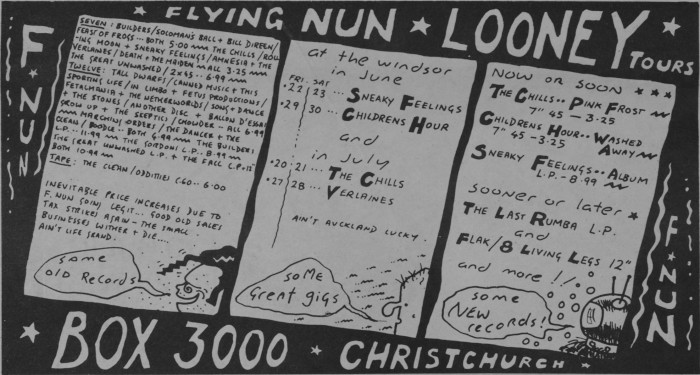 ★ FLYING NUN ★ LOONEY ★ TOURS
F. NUN
SEVEN: BUILDERS/SOLOMAN'S BALL + BILL DIREEN/
FEAST OF FROGS... BOTH 5.00 THE CHILLS/ROLL
-ING MOON + SNEAKY FEELINGS/AMNESIA + THE
VERLAINES/DEATH + THE MAIDEN ALL 3.25
THE GREAT UNWASHED/2x45 .. 6.99
TWELVE: TALL DWARFS/CANNED MUSIC + THIS
SPORTING LIFE/IN LIMBO + FETUS PRODUCTIONS/
FETALMANIA + THE NETHERWORLDS/SONG + DANCE
+ THE STONES/ANOTHER DISC + BALLON D'ESSAI
GROW UP + THE SKEPTICS/CHOWDER .. ALL 6.99
MARCHING ORDERS/THE DANCER + THE
CLEAN/BOODLE .. BOTH 6.99 THE BUILDERS
L.P. .. 11.99 THE GORDONS L.P... 8.99
THE GREAT UNWASHED L.P. + THE FALL L.P.
BOTH 10.99
TAPE: THE CLEAN/ODDITIES C60... 6.00
INEVITABLE PRICE INCREASES DUE TO
F. NUN GOING LEGIT... GOOD OLD SALES
TAX STRIKES AGAIN - THE SMALL
BUSINESSES WITHER + DIE....
AIN'T LIFE GRAND.
some
OLD Records
at the windsor
in June
FRI. SAT
•22 / 23 ... SNEAKY FEELINGS
•29 / 30 ... CHILDRENS HOUR
and
in July
•20 • 21 ... THE CHILLS
•27 / 28 ... VERLAINES
AIN'T AUCKLAND LUCKY.
some
Great gigs
NOW OR SOON ★ ★ ★
THE CHILLS.. PINK FROST
7" 45 — 3.25
CHILDRENS HOUR.. WASHED
AWAY
7" 45 - 3.25
SNEAKY FEELINGS.. ALBUM
L.P. - 8.99
sooner or later ★
THE LAST RUMBA L.P.
and
FLAK/8 LIVING LEGS 12"
and more !!
some
NEW
records!
F. NUN
★ BOX 3000 ★ CHRISTCHURCH ★